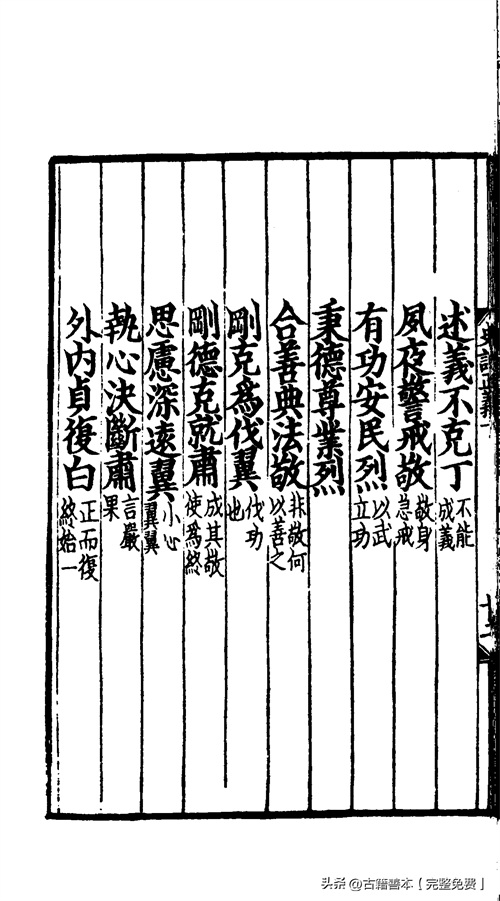 述義不克丁 不能成義
夙夜警戒敬 敬身急戒
有功安民烈 以武立功
秉德尊業烈
合善典法敬 非敬何以善之
剛克為伐翼 伐功也
剛德克就肅 成其敬使為終
思慮深遠翼 小心翼翼
執心決斷肅 言嚴果
外內貞復白 正而復終始一
头条 @古籍善本【完整免费】